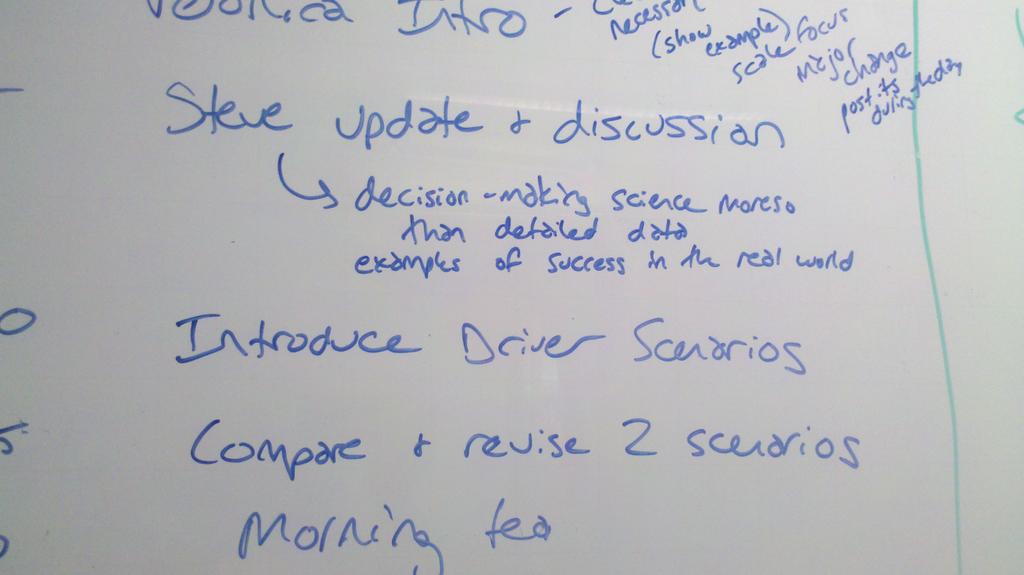 Intro -
necessary
(show example)
scale focus
major change
post-its
during the day
Steve update + discussion
decision-making science moreso
than detailed data
examples of success in the real world
Introduce Driver Scenarios
Compare + revise 2 scenarios
Morning tea